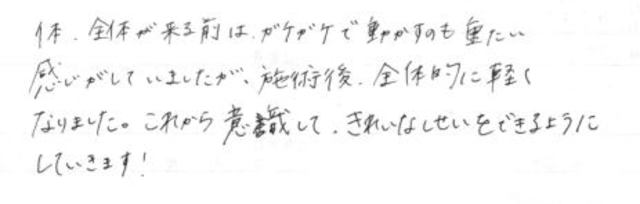 体、全体が来る前は、ガケガケで動かすのも重たい
感じがしていましたが、施術後、全体的に軽く
なりました。これから意識して、きれいなしせいをできるように
していきます!